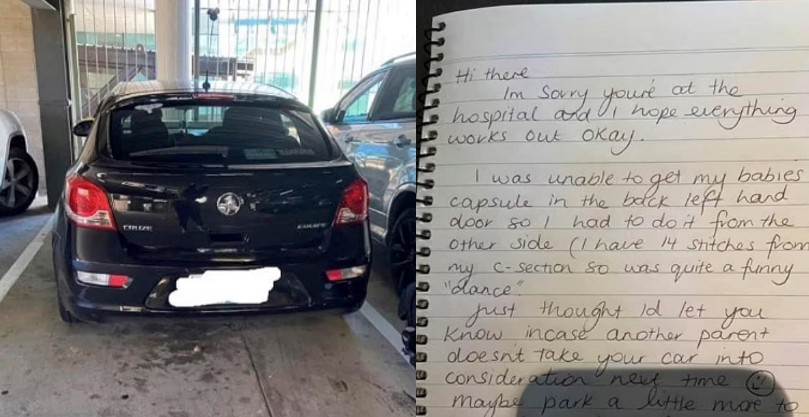 CRUZE
Hi there
Im sorry you're at the
hospital and I hope everything
works out okay.
I was unable to get my babies
capsule in the back left hand
door so I had to do it from the
other side (I have 14 stitches from
my c-section so was quite a funny
"dance".
Just thought Id let you
know incase another parent
doesn't take your car into
consideration next time
maybe park a little more to